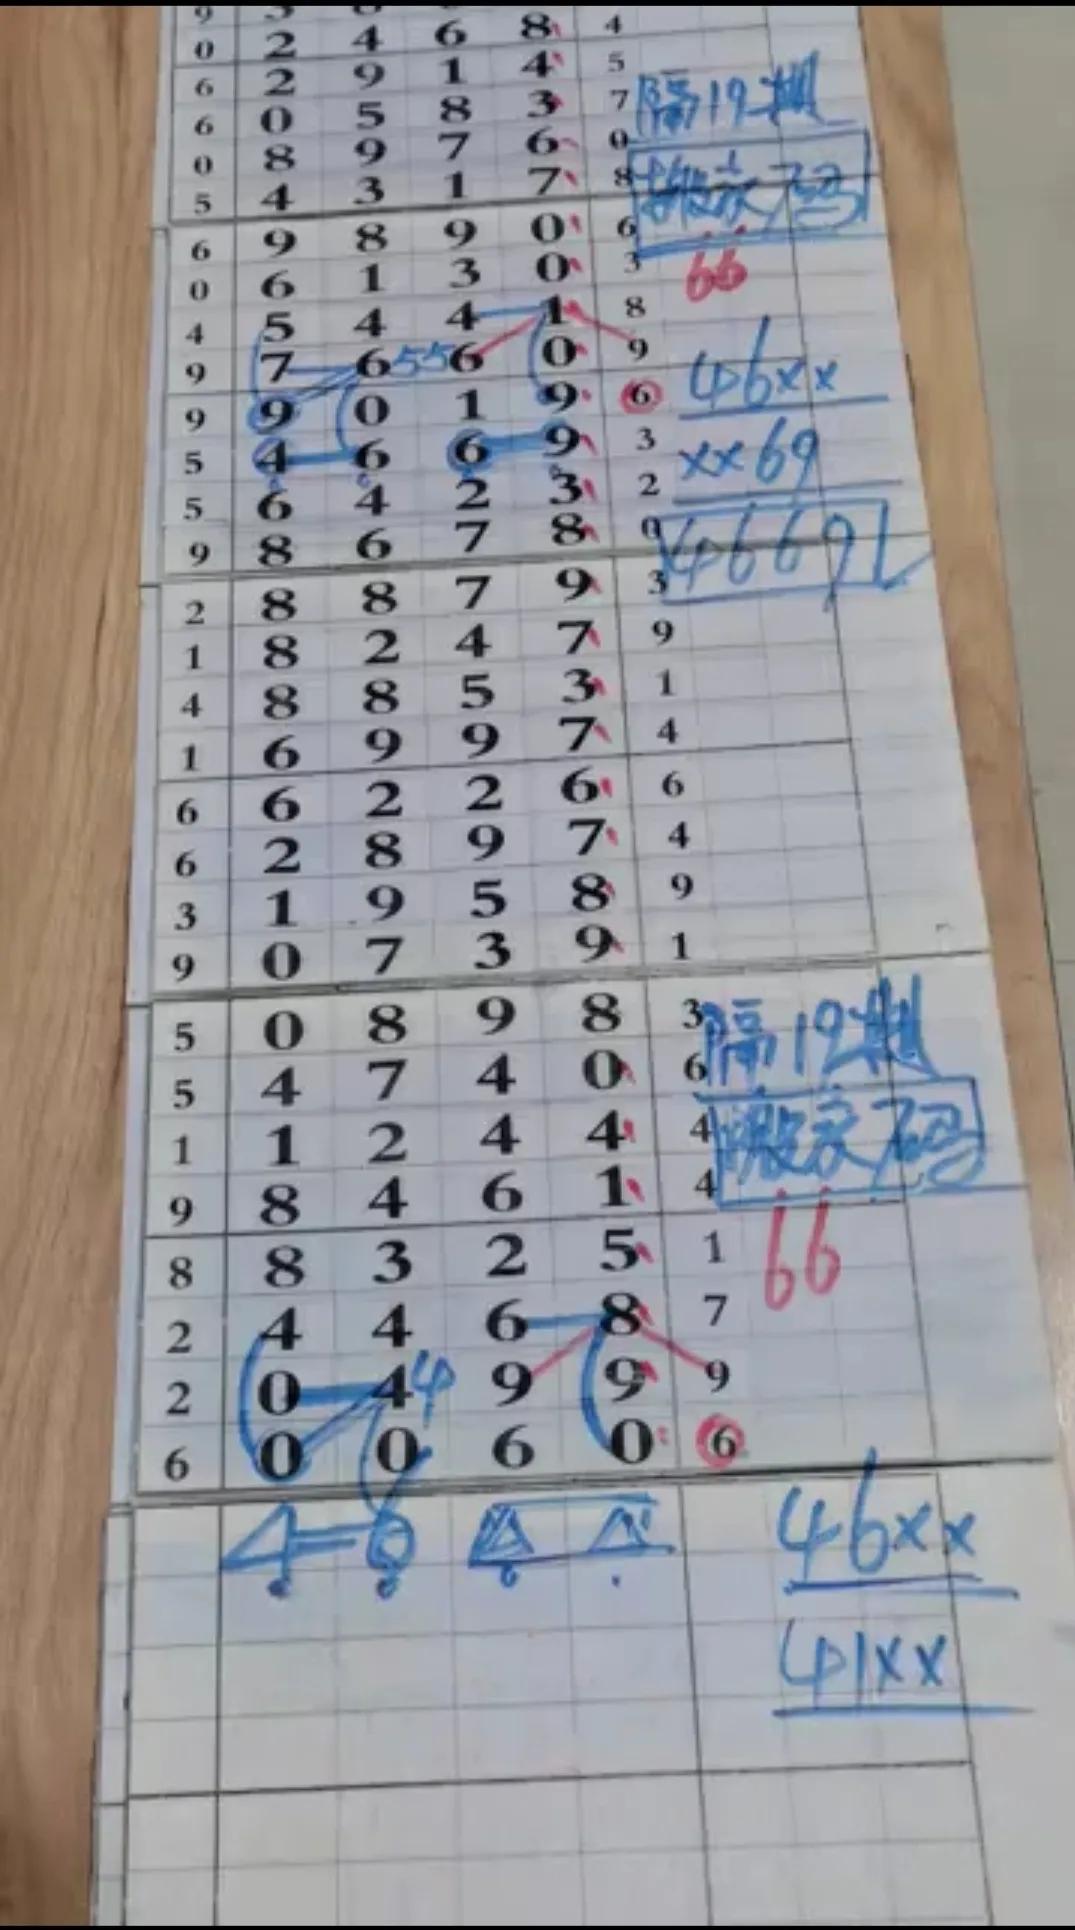 0 2 4 6 8 4
6 2 9 1 4 5
6 0 5 8 3 7
隔19期
0 8 9 7 6 0
5 4 3 1 7 8
6 9 8 9 0 6
0 6 1 3 0 3
66
4 5 4 4 1 8
9 7 6 55 6 0 9
46xx
9 9 0 1 9 6
5 4 6 6 9 3
xx69
5 6 4 2 3 2
9 8 6 7 8 0
4669
2 8 8 7 9 3
1 8 2 4 7 9
4 8 8 5 3 1
1 6 9 9 7 4
6 6 2 2 6 6
6 2 8 9 7 4
3 1 9 5 8 9
9 0 7 3 9 1
5 0 8 9 8 3
隔19期
5 4 7 4 0 6
1 1 2 4 4 4
9 8 4 6 1 4
8 8 3 2 5 1
66
2 4 4 6 8 7
2 0 4 4 9 9 9
6 0 0 6 0 6
4 6
46xx
41xx